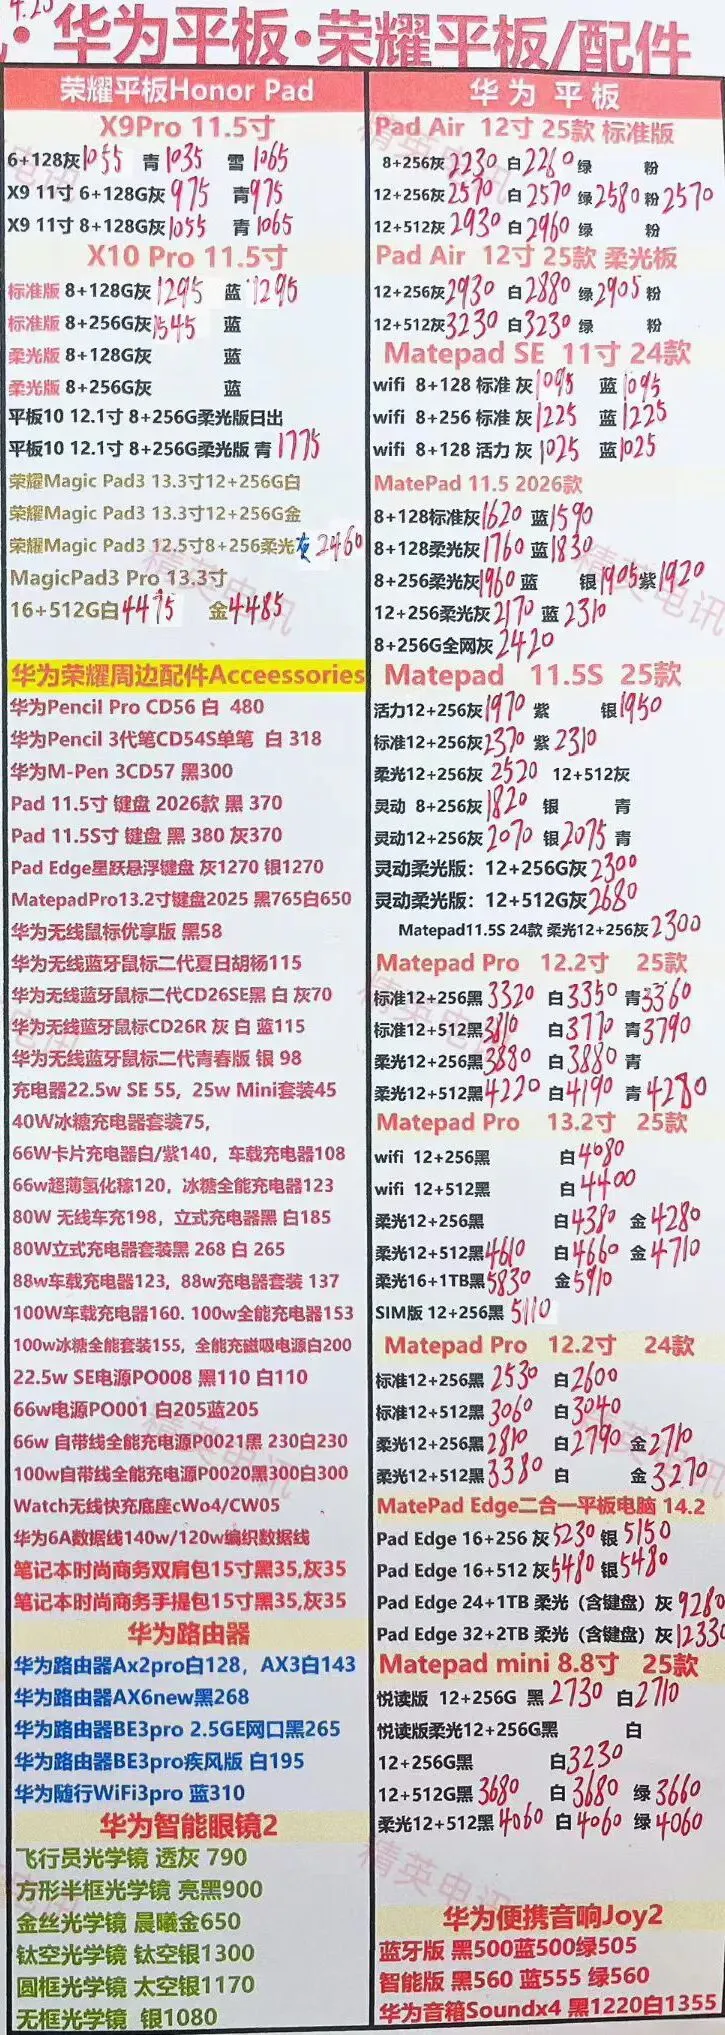 4.25
·华为平板·荣耀平板/配件
荣耀平板Honor Pad
X9Pro 11.5寸
6+128灰1055 青1035 雪1065
X9 11寸 6+128G灰975 青975
X9 11寸 8+128G灰1055 青1065
X10 Pro 11.5寸
标准版 8+128G灰1295 蓝1295
标准版 8+256G灰1545 蓝
柔光版 8+128G灰 蓝
柔光版 8+256G灰 蓝
平板10 12.1寸 8+256G柔光版日出
平板10 12.1寸 8+256G柔光版 青1775
荣耀Magic Pad3 13.3寸12+256G白
荣耀Magic Pad3 13.3寸12+256G金
荣耀Magic Pad3 12.5寸8+256柔光灰2460
MagicPad3 Pro 13.3寸
16+512G白4475 金4485
华为荣耀周边配件Acceessories
华为Pencil Pro CD56 白 480
华为Pencil 3代笔CD54S单笔 白 318
华为M-Pen 3CD57 黑300
Pad 11.5寸 键盘 2026款 黑 370
Pad 11.5S寸 键盘 黑 380 灰370
Pad Edge星跃悬浮键盘 灰1270 银1270
MatepadPro13.2寸键盘2025 黑765白650
华为无线鼠标优享版 黑58
华为无线蓝牙鼠标二代夏日胡杨115
华为无线蓝牙鼠标二代CD26SE黑 白 灰70
华为无线蓝牙鼠标CD26R 灰 白 蓝115
华为无线蓝牙鼠标二代青春版 银 98
充电器22.5w SE 55，25w Mini套装45
40W冰糖充电器套装75，
66W卡片充电器白/紫140，车载充电器108
66w超薄氢化稼120，冰糖全能充电器123
80W 无线车充198，立式充电器黑 白185
80W立式充电器套装黑 268 白 265
88w车载充电器123，88w充电器套装 137
100W车载充电器160. 100w全能充电器153
100w冰糖全能套装155，全能充磁吸电源白200
22.5w SE电源PO008 黑110 白110
66w电源PO001 白205蓝205
66w 自带线全能充电源P0021黑 230白230
100w自带线全能充电源P0020黑300白300
Watch无线快充底座cWo4/CW05
华为6A数据线140w/120w编织数据线
笔记本时尚商务双肩包15寸黑35,灰35
笔记本时尚商务手提包15寸黑35,灰35
华为路由器
华为路由器Ax2pro白128，AX3白143
华为路由器AX6new黑268
华为路由器BE3pro 2.5GE网口黑265
华为路由器BE3pro疾风版 白195
华为随行WiFi3pro 蓝310
华为智能眼镜2
飞行员光学镜 透灰 790
方形半框光学镜 亮黑900
金丝光学镜 晨曦金650
钛空光学镜 钛空银1300
圆框光学镜 太空银1170
无框光学镜 银1080
华为 平板
Pad Air 12寸 25款 标准版
8+256灰2230 白2260 绿 粉
12+256灰2570 白2570 绿2580 粉2570
12+512灰2930 白2960 绿 粉
Pad Air 12寸 25款 柔光板
12+256灰2930 白2880 绿2905 粉
12+512灰3230 白3230 绿 粉
Matepad SE 11寸 24款
wifi 8+128 标准 灰1095 蓝1095
wifi 8+256 标准 灰1225 蓝1225
wifi 8+128 活力 灰1025 蓝1025
MatePad 11.5 2026款
8+128标准灰1620 蓝1590
8+128柔光灰1760 蓝1830
8+256柔光灰1960 蓝 银1905 紫1920
12+256柔光灰2170 蓝2310
8+256G全网灰2420
Matepad 11.5S 25款
活力12+256灰1970 紫 银1950
标准12+256灰2370 紫2310
柔光12+256灰 2520 12+512灰
灵动 8+256灰1820 银 青
灵动12+256灰2070 银2075 青
灵动柔光版：12+256G灰2300
灵动柔光版：12+512G灰2680
Matepad11.5S 24款 柔光12+256灰2300
Matepad Pro 12.2寸 25款
标准12+256黑3320 白3350 青3360
标准12+512黑3810 白3770 青3790
柔光12+256黑3880 白3880 青
柔光12+512黑4220 白4190 青4280
Matepad Pro 13.2寸 25款
wifi 12+256黑 白4080
wifi 12+512黑 白4400
柔光12+256黑 白4380 金4280
柔光12+512黑4610 白4660 金4710
柔光16+1TB黑5830 金5910
SIM版 12+256黑 5110
Matepad Pro 12.2寸 24款
标准12+256黑 2530 白2600
标准12+512黑 3060 白3040
柔光12+256黑 2810 白2790 金2710
柔光12+512黑 3380 白 金3270
MatePad Edge二合一平板电脑 14.2
Pad Edge 16+256 灰5230 银5150
Pad Edge 16+512 灰5480 银5480
Pad Edge 24+1TB 柔光（含键盘）灰 9280
Pad Edge 32+2TB 柔光（含键盘）灰12330
Matepad mini 8.8寸 25款
悦读版 12+256G 黑 2730 白2710
悦读版柔光12+256G黑 白
12+256G黑 白3230
12+512G黑3680 白3680 绿3660
柔光12+512黑4060 白4060 绿4060
华为便携音响Joy2
蓝牙版 黑500蓝500绿505
智能版 黑560 蓝555 绿560
华为音箱Soundx4 黑1220白1355
精英电讯